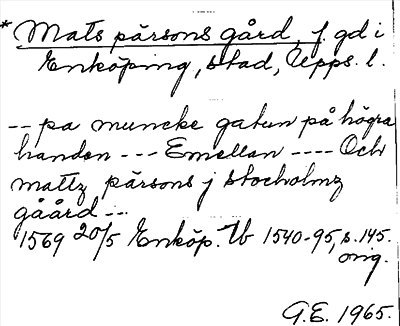 * Mats pärsons gård, f. gd i
Enköping, stad, Upps. l.
-- pa muncke gatun på högra
handen --- Emellan ---- Och
mattz pärsons j stocholmz
gåård ---
1569 20/5 Enköp. tb 1540-95, s. 145.
orig.
G.E. 1965.